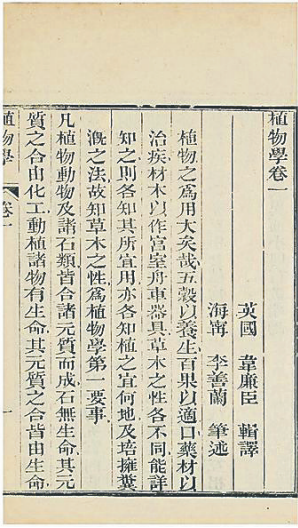 植物學卷一
英國 韋廉臣 輯譯
海甯 李善蘭 筆述
植物之爲用大矣哉五穀以養生百果以適口藥材以
治疾材木以作宮室舟車器具草木之性各不同能詳
知之則各知其所宜用亦各知植之宜何地及培擁糞
漑之法故知草木之性爲植物學第一要事
凡植物動物及諸石類皆合諸元質而成石無生命其元
質之合由化工動植諸物有生命其元質之合皆由生命
植物學 卷一 一